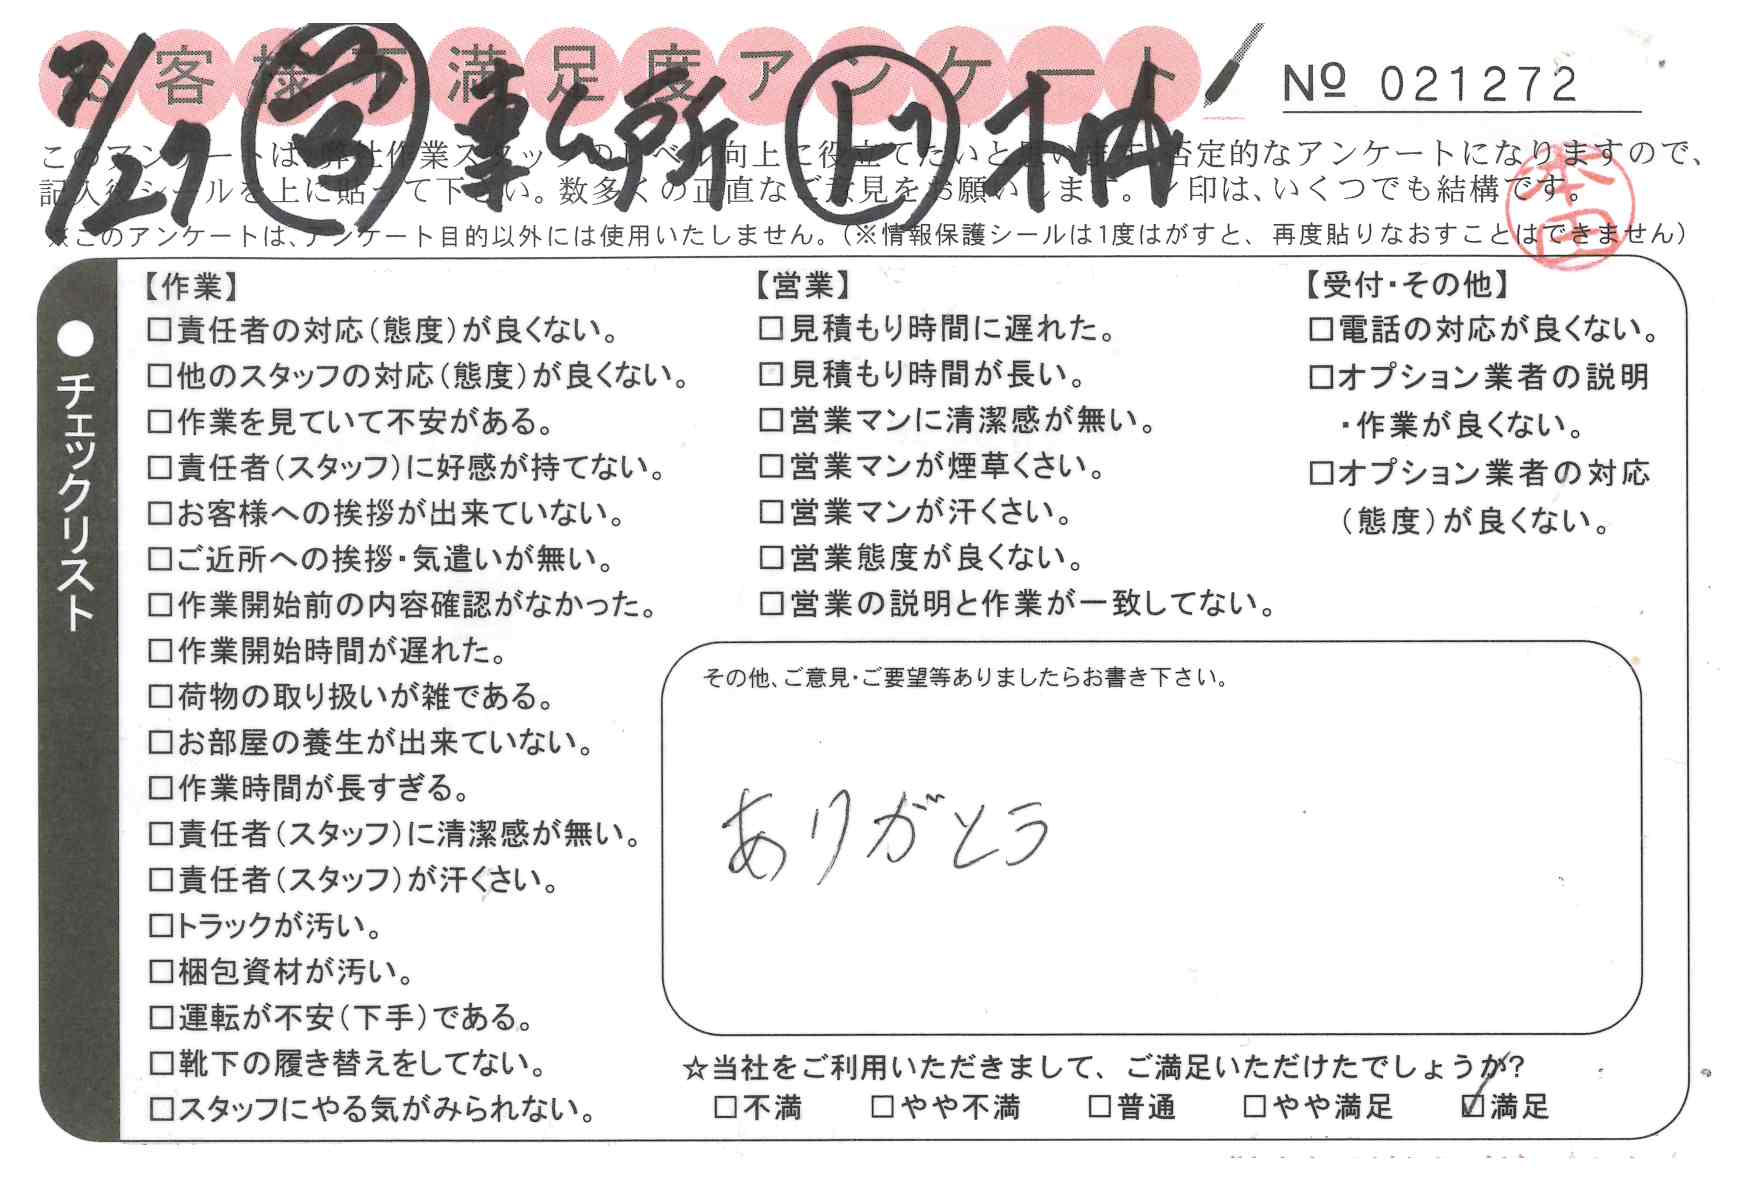 お客様不満足度アンケート
№ 021272
7/27 営 事ム所 上り 木村
このアンケートは、弊社作業スタッフのレベル向上に役立てたいと思います。否定的なアンケートになりますので、
記入後シールを上に貼って下さい。数多くの正直なご意見をお願いします。レ印は、いくつでも結構です。
※このアンケートは、アンケート目的以外には使用いたしません。（※情報保護シールは1度はがすと、再度貼りなおすことはできません）
本田
●チェックリスト
【作業】
□責任者の対応（態度）が良くない。
□他のスタッフの対応（態度）が良くない。
□作業を見ていて不安がある。
□責任者（スタッフ）に好感が持てない。
□お客様への挨拶が出来ていない。
□ご近所への挨拶・気遣いが無い。
□作業開始前の内容確認がなかった。
□作業開始時間が遅れた。
□荷物の取り扱いが雑である。
□お部屋の養生が出来ていない。
□作業時間が長すぎる。
□責任者（スタッフ）に清潔感が無い。
□責任者（スタッフ）が汗くさい。
□トラックが汚い。
□梱包資材が汚い。
□運転が不安（下手）である。
□靴下の履き替えをしてない。
□スタッフにやる気がみられない。
【営業】
□見積もり時間に遅れた。
□見積もり時間が長い。
□営業マンに清潔感が無い。
□営業マンが煙草くさい。
□営業マンが汗くさい。
□営業態度が良くない。
□営業の説明と作業が一致してない。
【受付・その他】
□電話の対応が良くない。
□オプション業者の説明
・作業が良くない。
□オプション業者の対応
（態度）が良くない。
その他、ご意見・ご要望等ありましたらお書き下さい。
ありがとう
☆当社をご利用いただきまして、ご満足いただけたでしょうか？
□不満 □やや不満 □普通 □やや満足 ☑満足